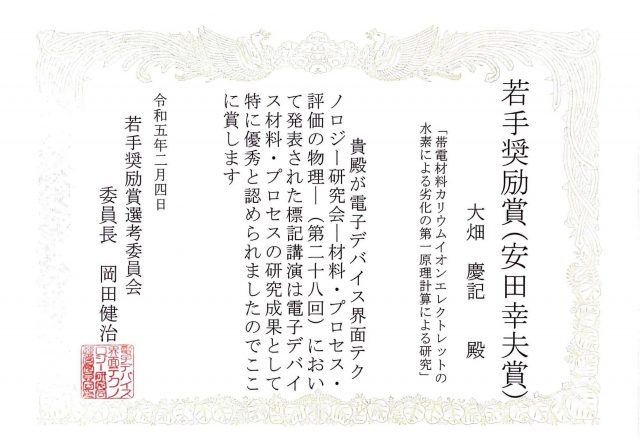 若手奨励賞(安田幸夫賞)
大畑 慶記 殿
「帯電材料カリウムイオンエレクトレットの
水素による劣化の第一原理計算による研究」
貴殿が電子デバイス界面テク
ノロジー研究会―材料・プロセス・
評価の物理―(第二十八回)におい
て発表された標記講演は電子デバイ
ス材料・プロセスの研究成果として
特に優秀と認められましたのでここ
に賞します
令和五年二月四日
若手奨励賞選考委員会
委員長 岡田健治
電子デバイス
界面テクノ
ロジー研究会